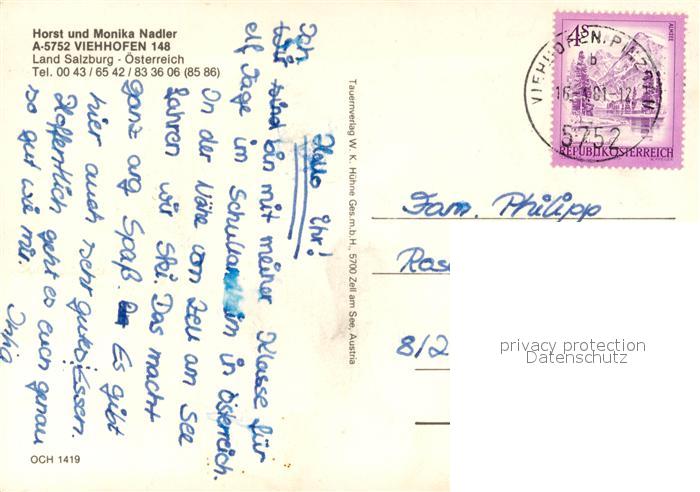 Horst und Monika Nadler
A-5752 VIEHHOFEN 148
Land Salzburg - Österreich
Tel. 00 43 / 65 42 / 83 36 06 (85 86)
Hallo ihr!
Ich
Wir sind bin mit meiner Klasse für
elf Tage im Schullandheim in Österreich.
In der Nähe von Zell am See
fahren wir Ski. Das macht
ganz arg Spaß. Es gibt
hier auch sehr gutes Essen.
Hoffentlich geht es euch genau
so gut wie mir.
OCH 1419
Tauernverlag W. K. Hühne Ges.m.b.H., 5700 Zell am See, Austria
4S
ALMSEE
REPUBLIK ÖSTERREICH
VIEHHOFEN, PINZGAU
b
5752
Fam. Philipp
8/2
privacy protection
Datenschutz